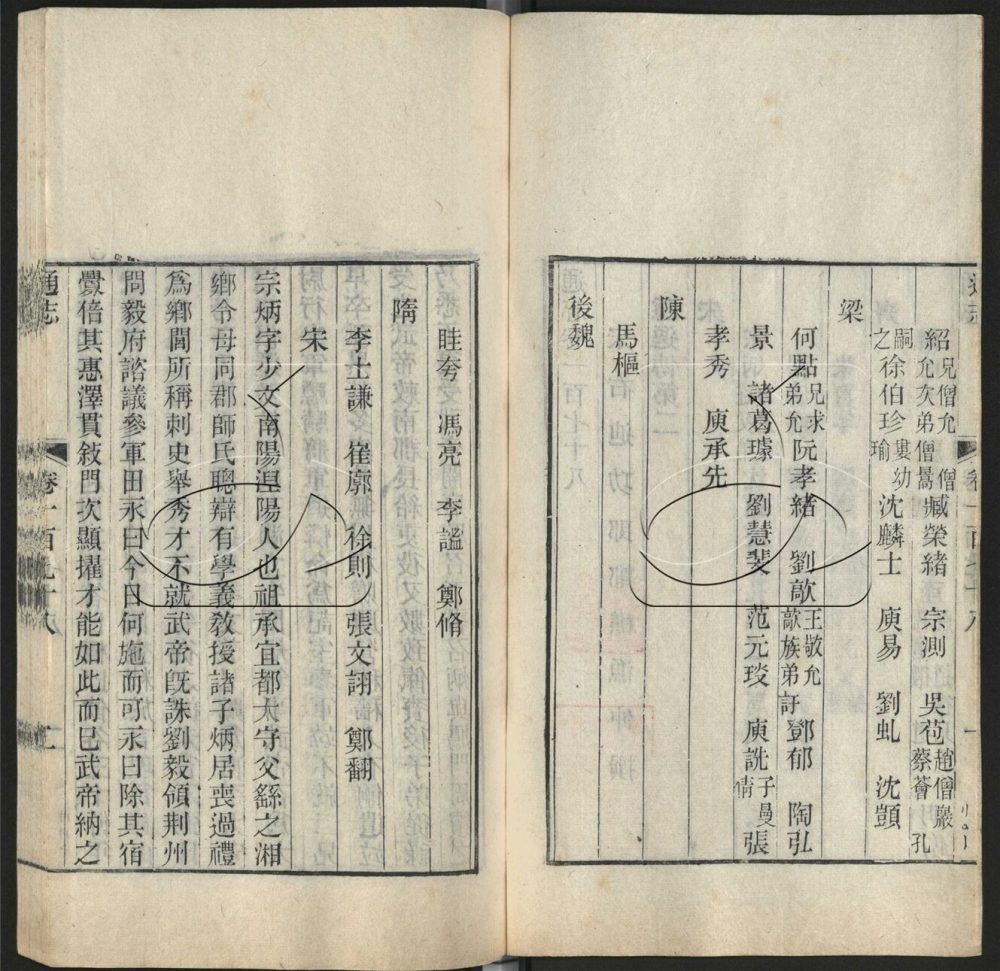 紹兄僧允 允次弟僧暠 僧 臧榮緒 宗測 吳苞趙僧巖 蔡薈 孔
嗣之徐伯珍婁幼瑜 沈麟士 庾易 劉虬 沈顗
梁
何點兄求 弟允 阮孝緒 劉歊王敬允 歊族弟訏 鄧郁 陶弘
景 諸葛璩 劉慧斐 范元琰 庾詵子曼倩 張
孝秀 庾承先
陳
馬樞
後魏
眭夸 馮亮 李謐 鄭脩
隋
李士謙 崔廓 徐則 張文詡 鄭翻
宋
宗炳字少文南陽涅陽人也祖承宜都太守父繇之湘
鄉令母同郡師氏聰辯有學義教授諸子炳居喪過禮
爲鄉閭所稱刺史舉秀才不就武帝旣誅劉毅領荆州
問毅府諮議參軍田永曰今日何施而可永曰除其宿
釁倍其惠澤貫敘門次顯擢才能如此而已武帝納之
通志
卷一百七十八